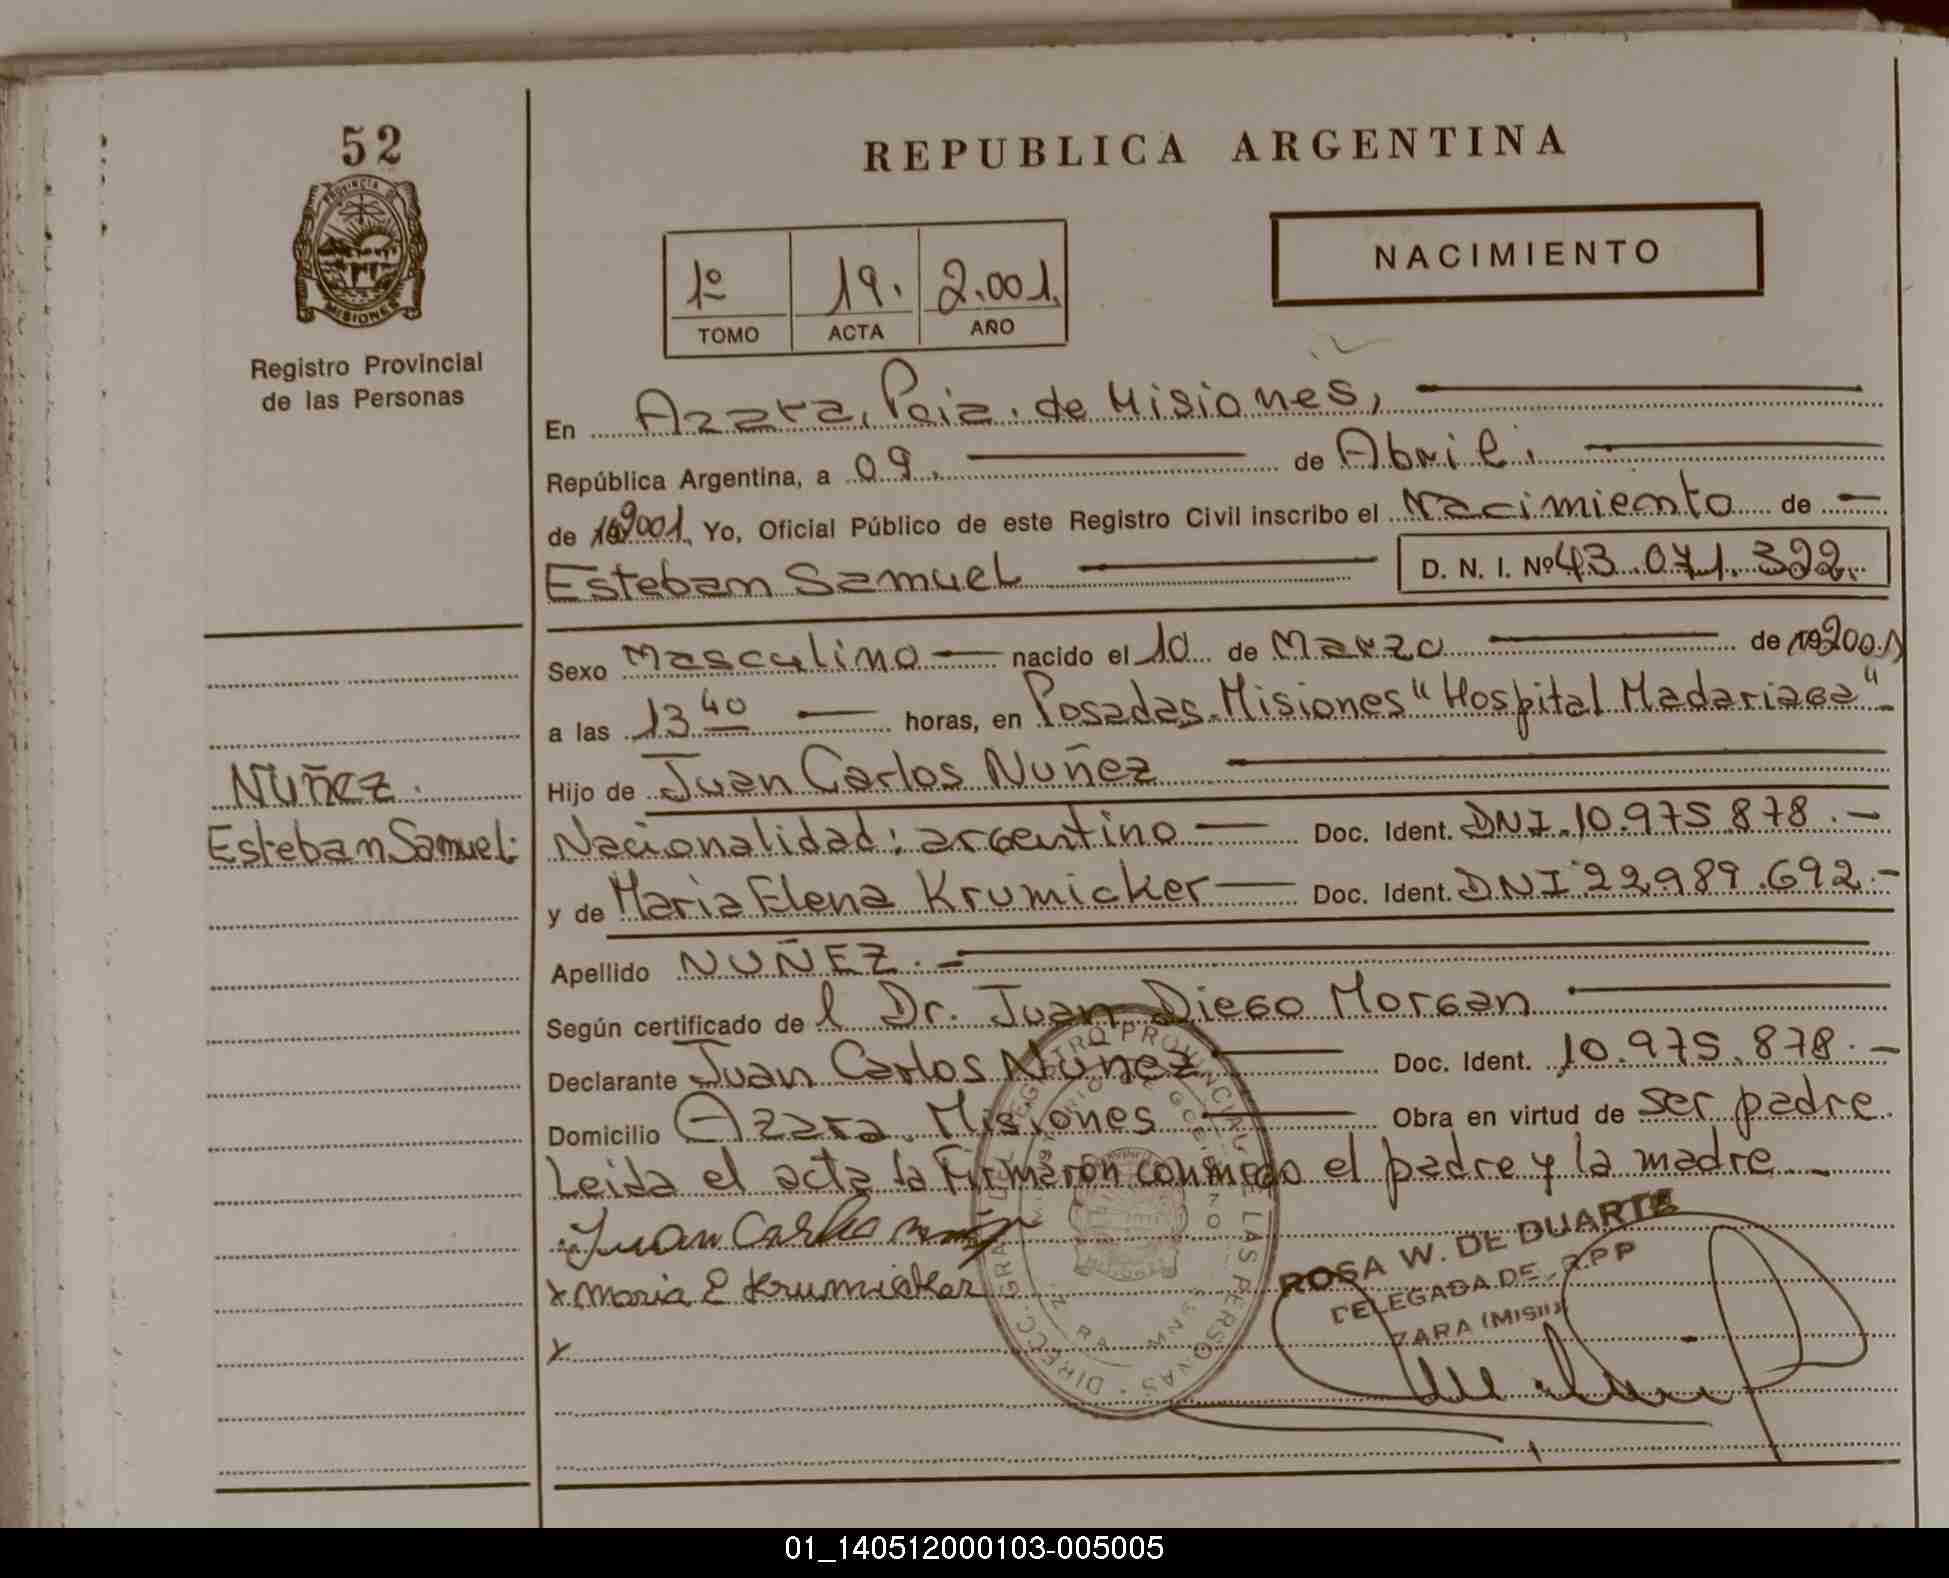 52
PROVINCIA DE
MISIONES
Registro Provincial
de las Personas
REPUBLICA ARGENTINA
NACIMIENTO
1º 19. 2.001.
TOMO ACTA AÑO
En Azara, Pcia. de Misiones,
República Argentina, a 09. de Abril.
de 2001. Yo, Oficial Público de este Registro Civil inscribo el Nacimiento de
Esteban Samuel D. N. I. Nº 43.071.322.
Sexo Masculino nacido el 10 de Marzo de 2001
a las 13 40 horas, en Posadas. Misiones "Hospital Madariaga"
Hijo de Juan Carlos Nuñez
Nacionalidad: argentino Doc. Ident. DNI.10.975.878.-
y de Maria Elena Krumicker Doc. Ident. DNI 22.989.692.-
Apellido NUÑEZ.
Según certificado de l Dr. Juan Diego Morgan
Declarante Juan Carlos Nuñez Doc. Ident. 10.975.878.-
Domicilio Azara. Misiones Obra en virtud de ser padre.
Leida el acta la Firmaron conmigo el padre y la madre
Nuñez.
Esteban Samuel.
Juan Carlos
x Maria E Krumicker
x
ROSA W. DE DUARTE
DELEGADA DE R.P.P
ZARA (MISI
LAS PERSONAS
01_140512000103-005005